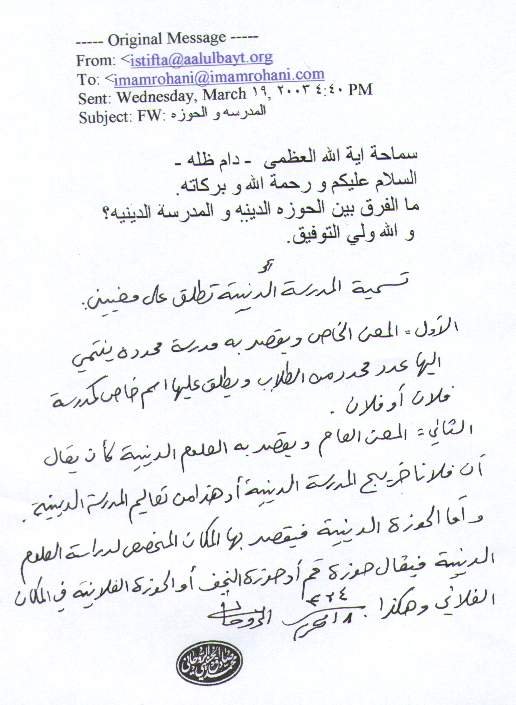 ----- Original Message -----
From: <istifta@aalulbayt.org
To: <imamrohani@imamrohani.com
Sent: Wednesday, March ١٩, ٢٠٠٣ ٤:٤٠ PM
Subject: FW: المدرسه و الحوزه
سماحة اية الله العظمى - دام ظله -
السلام عليكم و رحمة الله و بركاته.
ما الفرق بين الحوزه الدينه و المدرسة الدينيه؟
و الله ولي التوفيق.
تسمية المدرسة الدينية تطلق على معنيين.
الأول = المعنى الخاص ويقصد به مدرسة محددة ينتمي
اليها عدد محدد من الطلاب ويطلق عليها اسم خاص كمدرسة
فلان أو فلان.
الثاني = المعنى العام ويقصد به العلوم الدينية كأن يقال
أن فلانا خريج المدرسة الدينية أو هذا من تعاليم المدرسة الدينية.
و أما الحوزة الدينية فيقصد بها المكان المخصص لدراسة العلوم
الدينية فيقال حوزة قم أو حوزة النجف أو الحوزة الفلانية في المكان
الفلاني وهكذا. ١٨ محرم ١٤٢٤ الروحاني